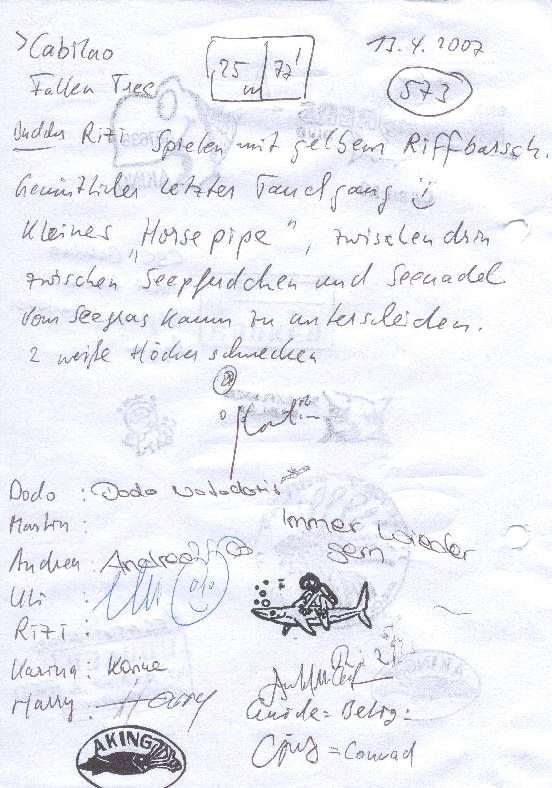 >Cabilao
25 m | 72'
13.4.2007
Fallen Tree
573
Buddy Rizi Spielen mit gelbem Riffbarsch.
Gemütlicher letzter Tauchgang
Kleines "Horsepipe", zwischendrin
zwischen Seepferdchen und Seenadel.
Vom Seegras kaum zu unterscheiden.
2 weiße Höcherschnecken
Dodo :
Martin :
Immer wieder
gern
Andrea : Andrea
Uli :
Rizi :
Karina : Karina
Harry : Harry
Guide = Betög =
= Conrad
AKING